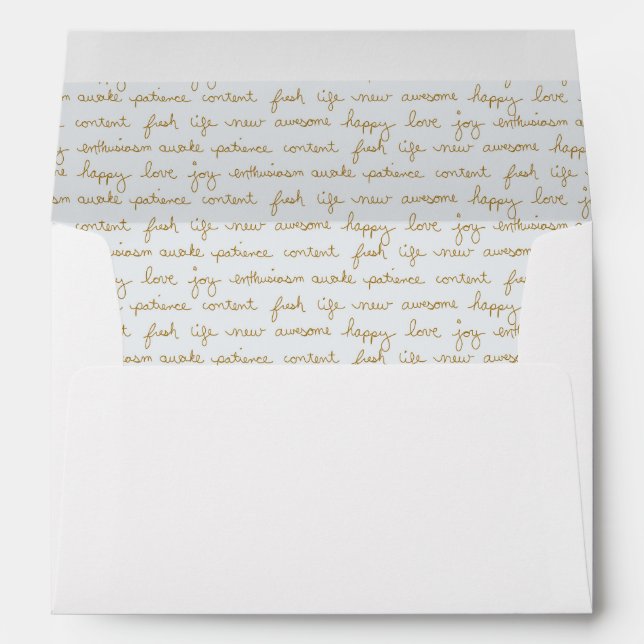 awake patience content fresh life new awesome happy love
content fresh life new awesome happy love joy enthusiasm
enthusiasm awake patience content fresh life new awesome happy
happy love joy enthusiasm awake patience content fresh life
awake patience content fresh life new awesome happy love joy
content fresh life new awesome happy love joy
awake patience content fresh life new awesome
happy love joy enthusiasm awake patience content
patience content fresh life new awesome happy
fresh life new awesome happy love joy
awake patience content fresh life new